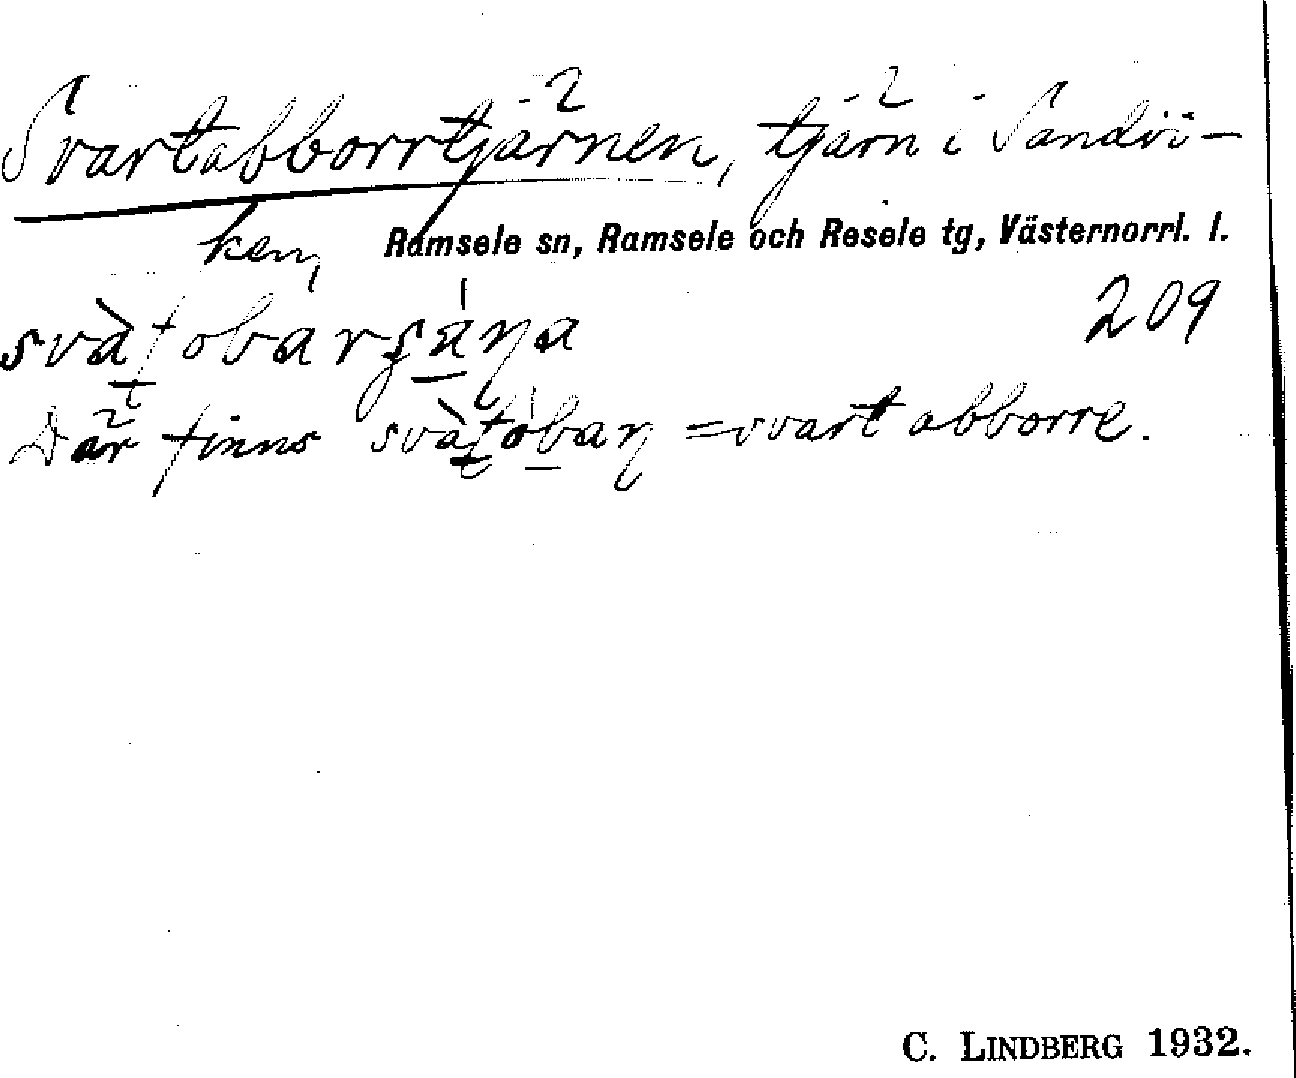 Svartabborrtjärnen, tjärn i Sandvi-
ken, Ramsele sn, Ramsele och Resele tg, Västernorrl. l.
209
Där finns = svart abborre.
C. LINDBERG 1932.